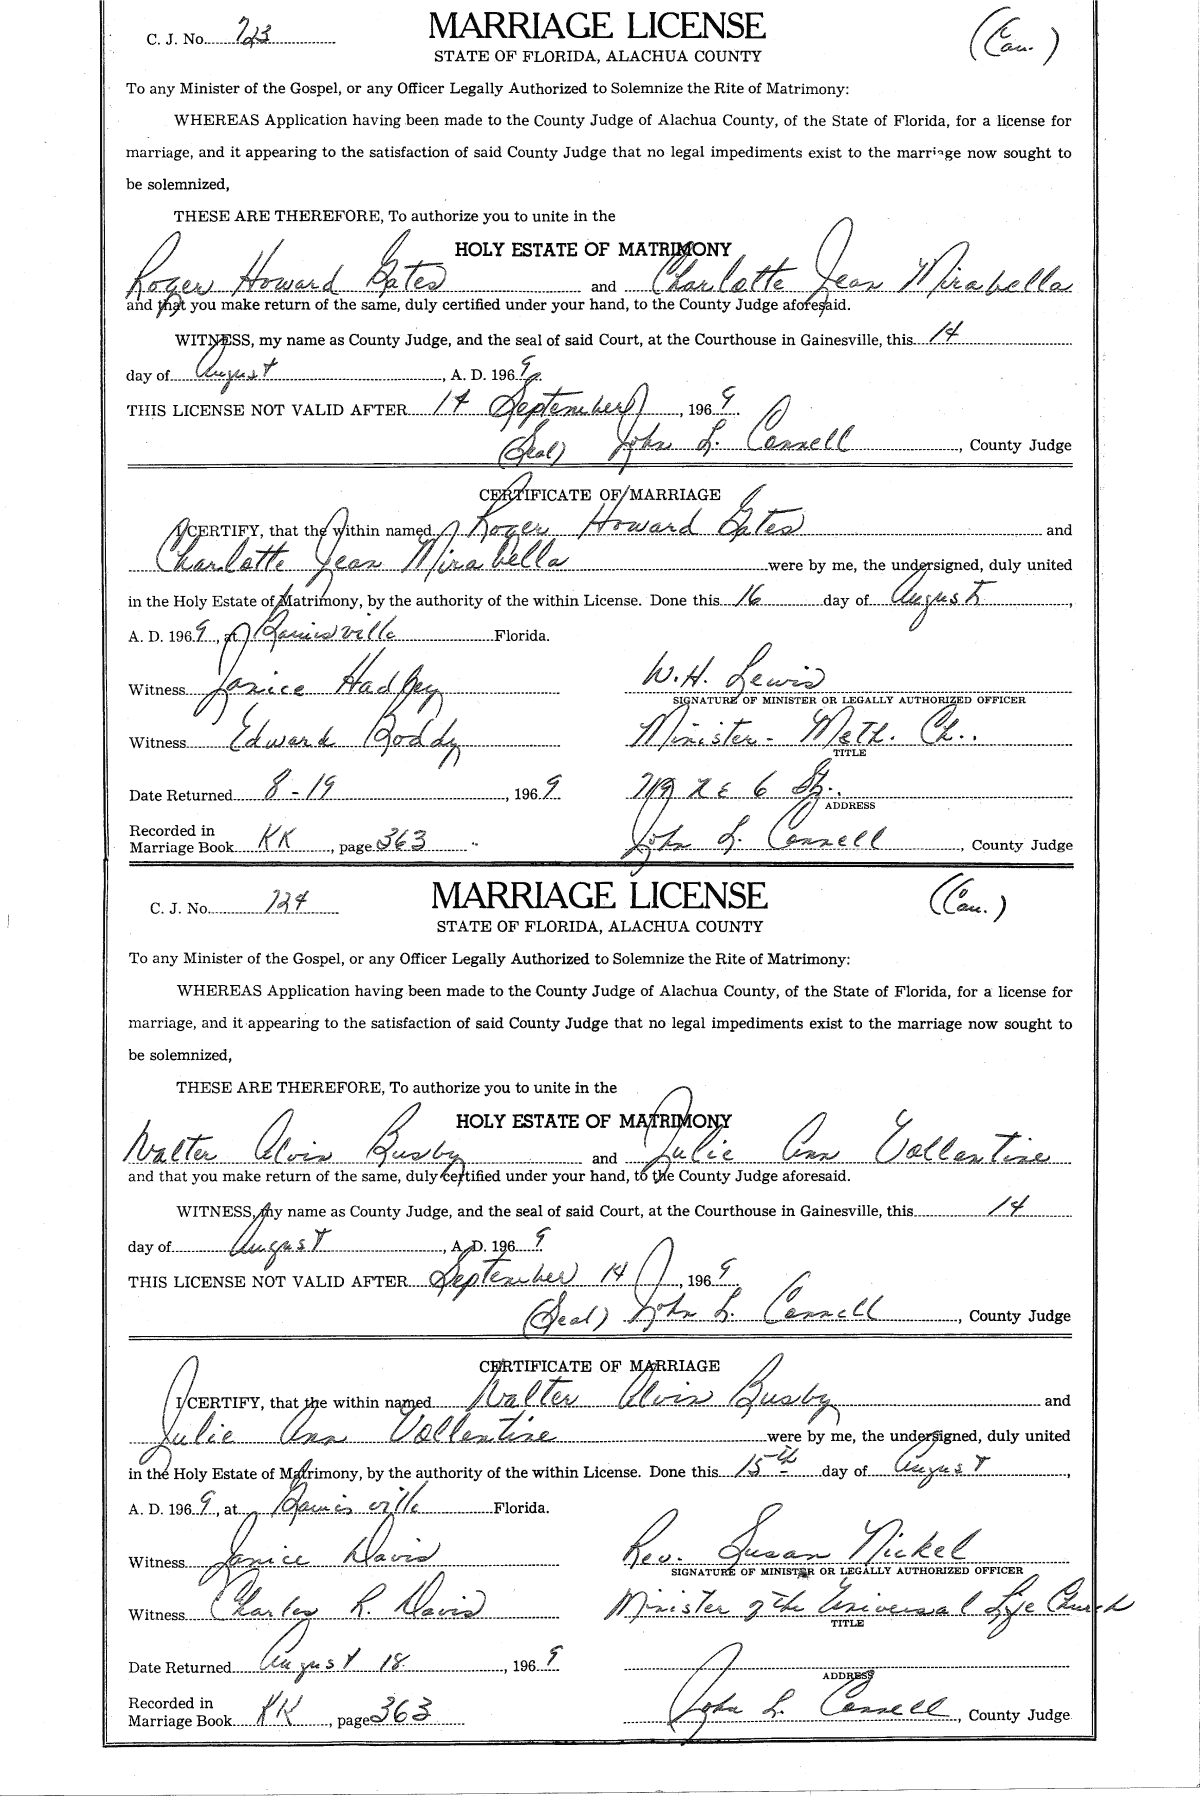 C. J. No. 723
MARRIAGE LICENSE
(Cau.)
STATE OF FLORIDA, ALACHUA COUNTY
To any Minister of the Gospel, or any Officer Legally Authorized to Solemnize the Rite of Matrimony:
WHEREAS Application having been made to the County Judge of Alachua County, of the State of Florida, for a license for
marriage, and it appearing to the satisfaction of said County Judge that no legal impediments exist to the marriage now sought to
be solemnized,
THESE ARE THEREFORE, To authorize you to unite in the
HOLY ESTATE OF MATRIMONY
Roger Howard Gates and Charlotte Jean Mirabella
and that you make return of the same, duly certified under your hand, to the County Judge aforesaid.
WITNESS, my name as County Judge, and the seal of said Court, at the Courthouse in Gainesville, this 14
day of August, A. D. 1969.
THIS LICENSE NOT VALID AFTER 14 September, 1969.
(Seal) John L. Connell, County Judge
CERTIFICATE OF MARRIAGE
I CERTIFY, that the within named Roger Howard Gates and
Charlotte Jean Mirabella were by me, the undersigned, duly united
in the Holy Estate of Matrimony, by the authority of the within License. Done this 16 day of August,
A. D. 1969, at Gainesville Florida.
Witness Janice Hadley W. H. Lewis
SIGNATURE OF MINISTER OR LEGALLY AUTHORIZED OFFICER
Witness Edward Roddy Minister - Meth. Ch..
TITLE
Date Returned 8-19, 1969 719 N E 6 St..
ADDRESS
Recorded in
Marriage Book KK, page 363 John L. Connell, County Judge
C. J. No. 724
MARRIAGE LICENSE
(Cau.)
STATE OF FLORIDA, ALACHUA COUNTY
To any Minister of the Gospel, or any Officer Legally Authorized to Solemnize the Rite of Matrimony:
WHEREAS Application having been made to the County Judge of Alachua County, of the State of Florida, for a license for
marriage, and it appearing to the satisfaction of said County Judge that no legal impediments exist to the marriage now sought to
be solemnized,
THESE ARE THEREFORE, To authorize you to unite in the
HOLY ESTATE OF MATRIMONY
Walter Alvin Busby and Julie Ann Vollentine
and that you make return of the same, duly certified under your hand, to the County Judge aforesaid.
WITNESS, my name as County Judge, and the seal of said Court, at the Courthouse in Gainesville, this 14
day of August, A. D. 1969
THIS LICENSE NOT VALID AFTER September 14, 1969.
(Seal) John L. Connell, County Judge
CERTIFICATE OF MARRIAGE
I CERTIFY, that the within named Walter Alvin Busby and
Julie Ann Vollentine were by me, the undersigned, duly united
in the Holy Estate of Matrimony, by the authority of the within License. Done this 15th day of August,
A. D. 1969, at Gainesville Florida.
Witness Janice Davis Rev. Susan Nickel
SIGNATURE OF MINISTER OR LEGALLY AUTHORIZED OFFICER
Witness Charles R. Davis Minister of the Universal Life Church
TITLE
Date Returned August 18, 1969
ADDRESS
Recorded in
Marriage Book KK, page 363 John L. Connell, County Judge